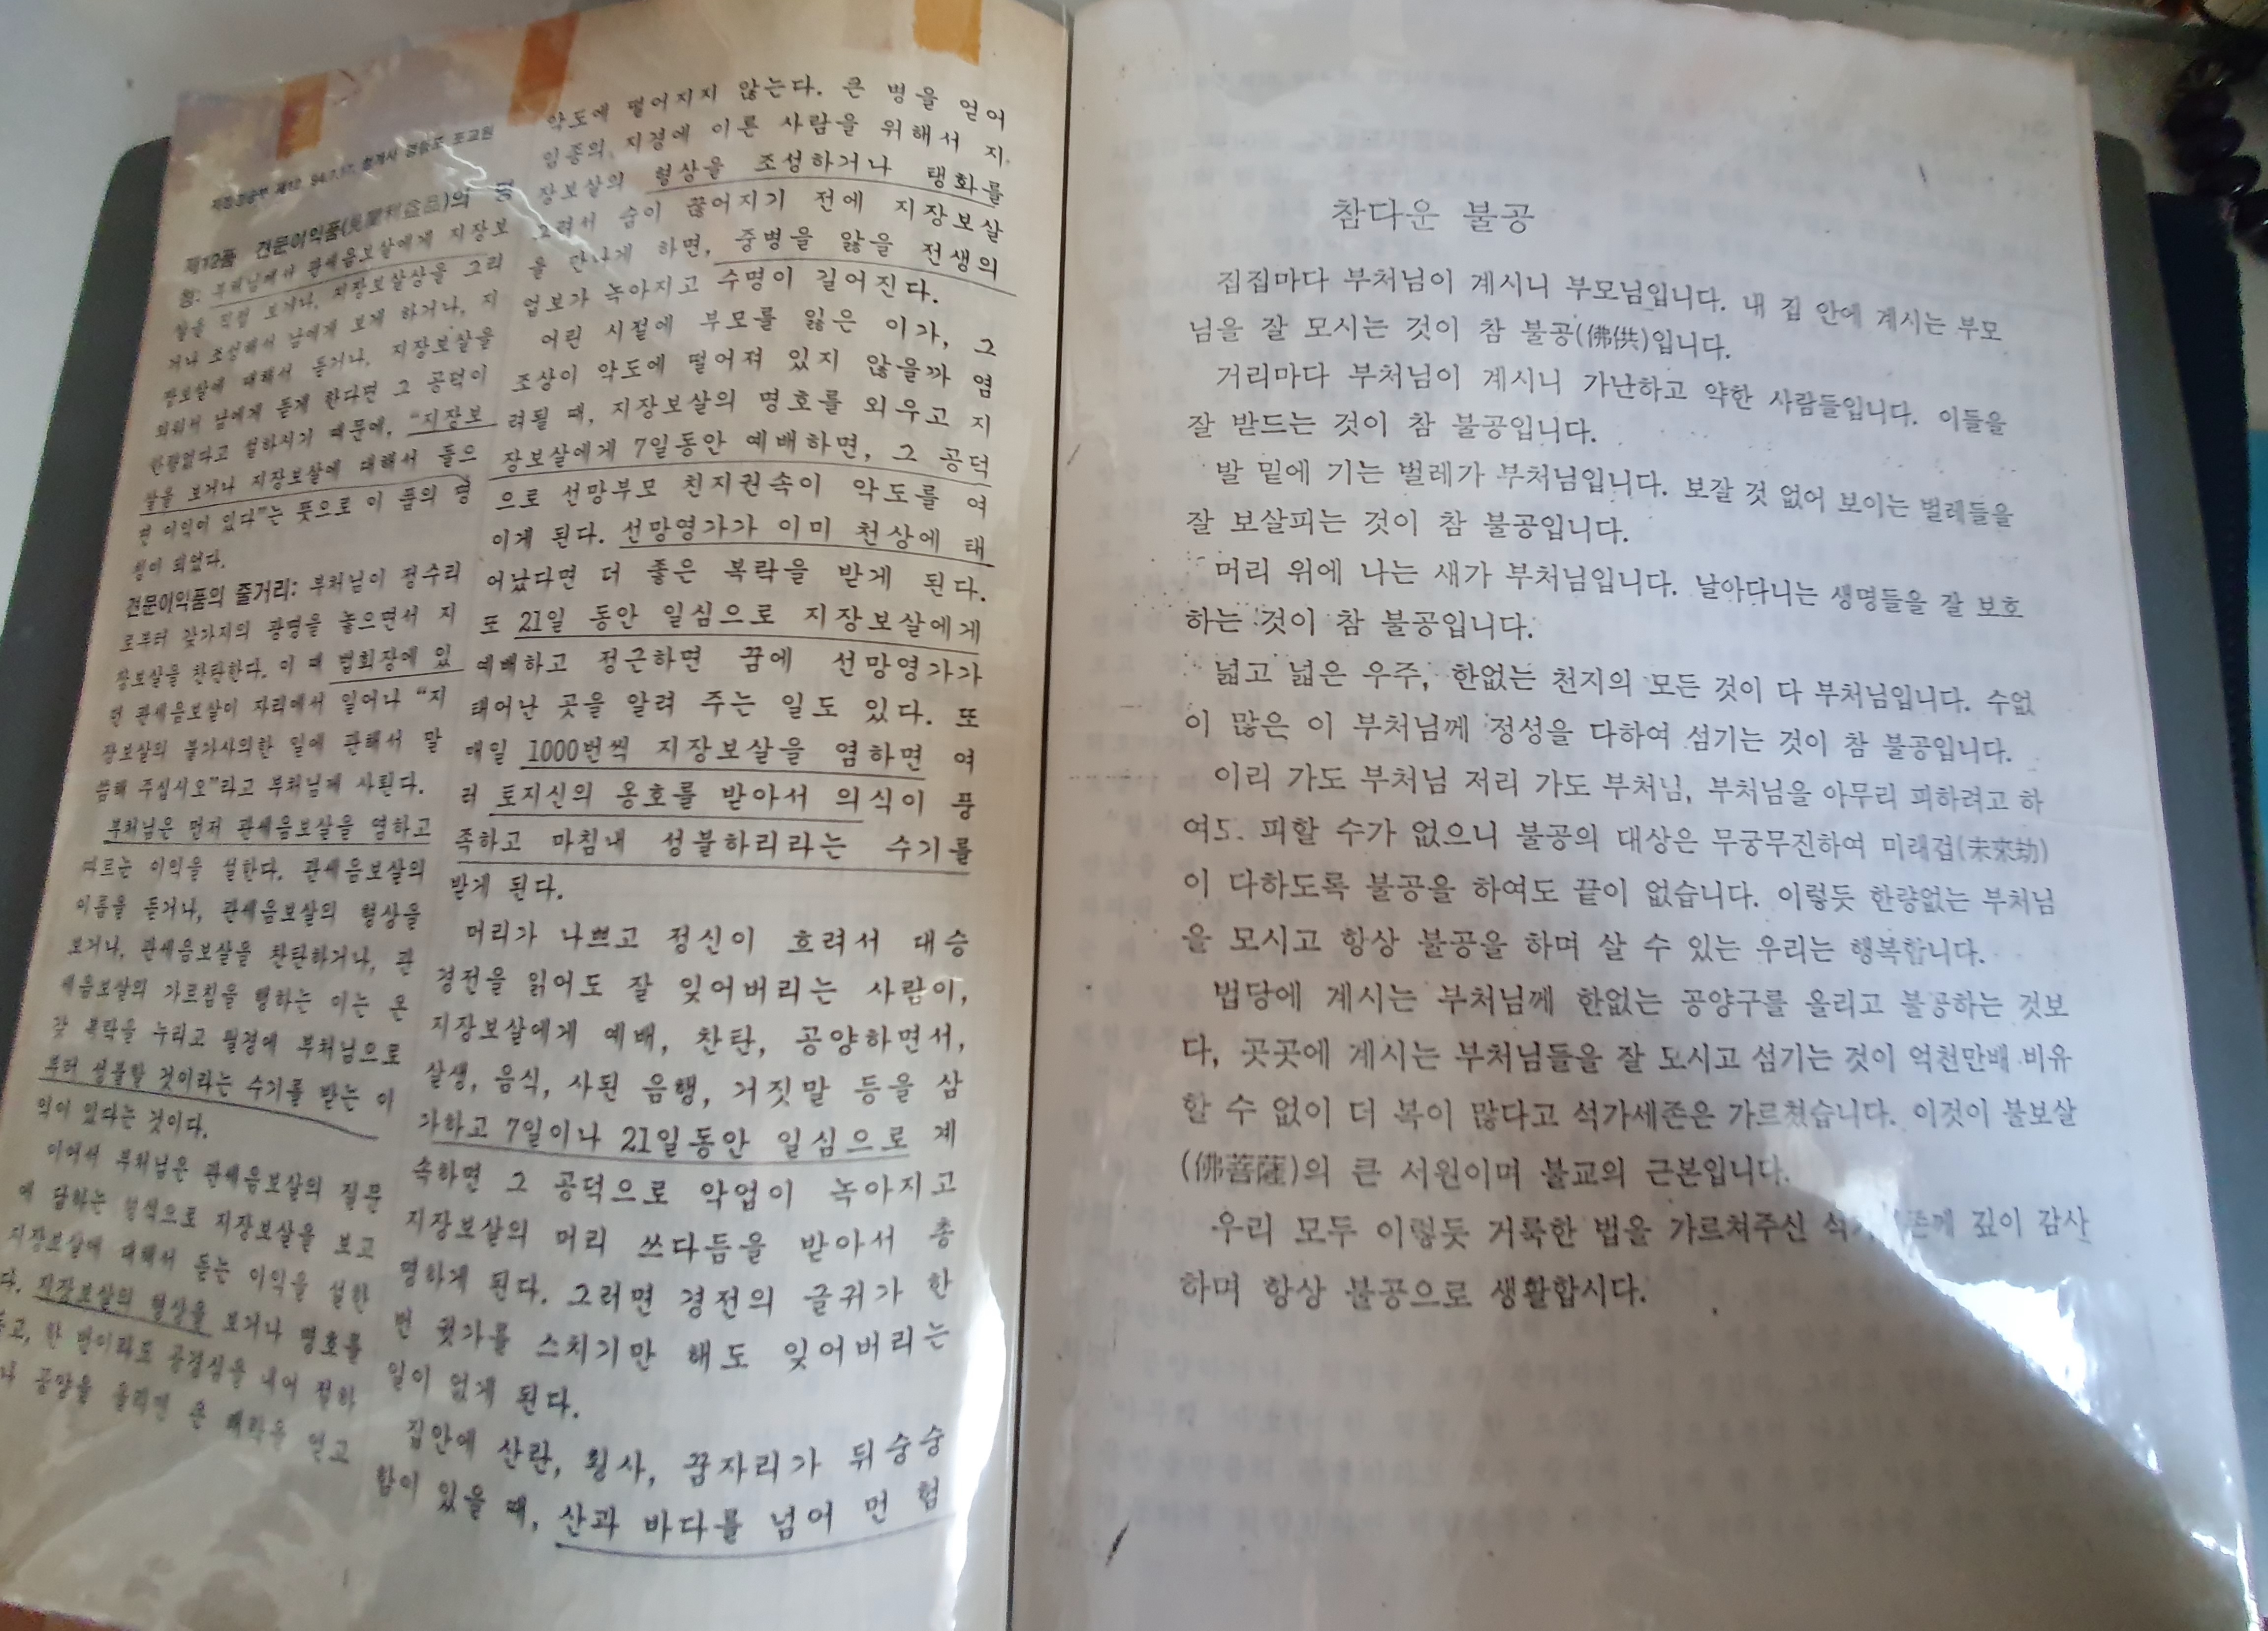 지장경공부 제12 94.7.17.
제12품 견문이익품(見聞利益品)의 명
칭: 부처님께서 관세음보살에게 지장보
살을 직접 보거나, 지장보살상을 그리
거나 조성해서 남에게 보게 하거나, 지
장보살에 대해서 듣거나, 지장보살을
외워서 남에게 듣게 한다면 그 공덕이
한량없다고 설하시기 때문에, “지장보
살을 보거나 지장보살에 대해서 들으
면 이익이 있다”는 뜻으로 이 품의 명
칭이 되었다.
견문이익품의 줄거리: 부처님이 정수리
로부터 갖가지의 광명을 놓으면서 지
장보살을 찬탄한다. 이 때 법회장에 있
던 관세음보살이 자리에서 일어나 “지
장보살의 불가사의한 일에 관해서 말
씀해 주십시오”라고 부처님께 사뢴다.
부처님은 먼저 관세음보살을 염하고
따르는 이익을 설한다. 관세음보살의
이름을 듣거나, 관세음보살의 형상을
보거나, 관세음보살을 찬탄하거나, 관
세음보살의 가르침을 행하는 이는 온
갖 복락을 누리고 필경에 부처님으로
부터 성불할 것이라는 수기를 받는 이
익이 있다는 것이다.
이어서 부처님은 관세음보살의 질문
에 답하는 형식으로 지장보살을 보고
지장보살에 대해서 듣는 이익을 설한
다. 지장보살의 형상을 보거나 명호를
듣고, 한 번이라도 공경심을 내어 절하
나 공양을 올리면 큰 쾌락을 얻고
악도에 떨어지지 않는다. 큰 병을 얻어
임종의 지경에 이른 사람을 위해서 지
장보살의 형상을 조성하거나 탱화를
그려서 숨이 끊어지기 전에 지장보살
을 만나게 하면, 중병을 앓을 전생의
업보가 녹아지고 수명이 길어진다.
어린 시절에 부모를 잃은 이가, 그
조상이 악도에 떨어져 있지 않을까 염
려될 때, 지장보살의 명호를 외우고 지
장보살에게 7일동안 예배하면, 그 공덕
으로 선망부모 친지권속이 악도를 여
이게 된다. 선망영가가 이미 천상에 태
어났다면 더 좋은 복락을 받게 된다.
또 21일 동안 일심으로 지장보살에게
예배하고 정근하면 꿈에 선망영가가
태어난 곳을 알려 주는 일도 있다. 또
매일 1000번씩 지장보살을 염하면 여
러 토지신의 옹호를 받아서 의식이 풍
족하고 마침내 성불하리라는 수기를
받게 된다.
머리가 나쁘고 정신이 흐려서 대승
경전을 읽어도 잘 잊어버리는 사람이,
지장보살에게 예배, 찬탄, 공양하면서,
살생, 음식, 사된 음행, 거짓말 등을 삼
가하고 7일이나 21일동안 일심으로 계
속하면 그 공덕으로 악업이 녹아지고
지장보살의 머리 쓰다듬을 받아서 총
명하게 된다. 그러면 경전의 글귀가 한
번 귓가를 스치기만 해도 잊어버리는
일이 없게 된다.
집안에 산란, 횡사, 꿈자리가 뒤숭숭
함이 있을 때, 산과 바다를 넘어 먼 험
참다운 불공
집집마다 부처님이 계시니 부모님입니다. 내 집 안에 계시는 부모
님을 잘 모시는 것이 참 불공(佛供)입니다.
거리마다 부처님이 계시니 가난하고 약한 사람들입니다. 이들을
잘 받드는 것이 참 불공입니다.
발 밑에 기는 벌레가 부처님입니다. 보잘 것 없어 보이는 벌레들을
잘 보살피는 것이 참 불공입니다.
머리 위에 나는 새가 부처님입니다. 날아다니는 생명들을 잘 보호
하는 것이 참 불공입니다.
넓고 넓은 우주, 한없는 천지의 모든 것이 다 부처님입니다. 수없
이 많은 이 부처님께 정성을 다하여 섬기는 것이 참 불공입니다.
이리 가도 부처님 저리 가도 부처님, 부처님을 아무리 피하려고 하
여도 피할 수가 없으니 불공의 대상은 무궁무진하여 미래겁(未來劫)
이 다하도록 불공을 하여도 끝이 없습니다. 이렇듯 한량없는 부처님
을 모시고 항상 불공을 하며 살 수 있는 우리는 행복합니다.
법당에 계시는 부처님께 한없는 공양구를 올리고 불공하는 것보
다, 곳곳에 계시는 부처님들을 잘 모시고 섬기는 것이 억천만배 비유
할 수 없이 더 복이 많다고 석가세존은 가르쳤습니다. 이것이 불보살
(佛菩薩)의 큰 서원이며 불교의 근본입니다.
우리 모두 이렇듯 거룩한 법을 가르쳐주신 석가 존께 깊이 감사
하며 항상 불공으로 생활합시다.